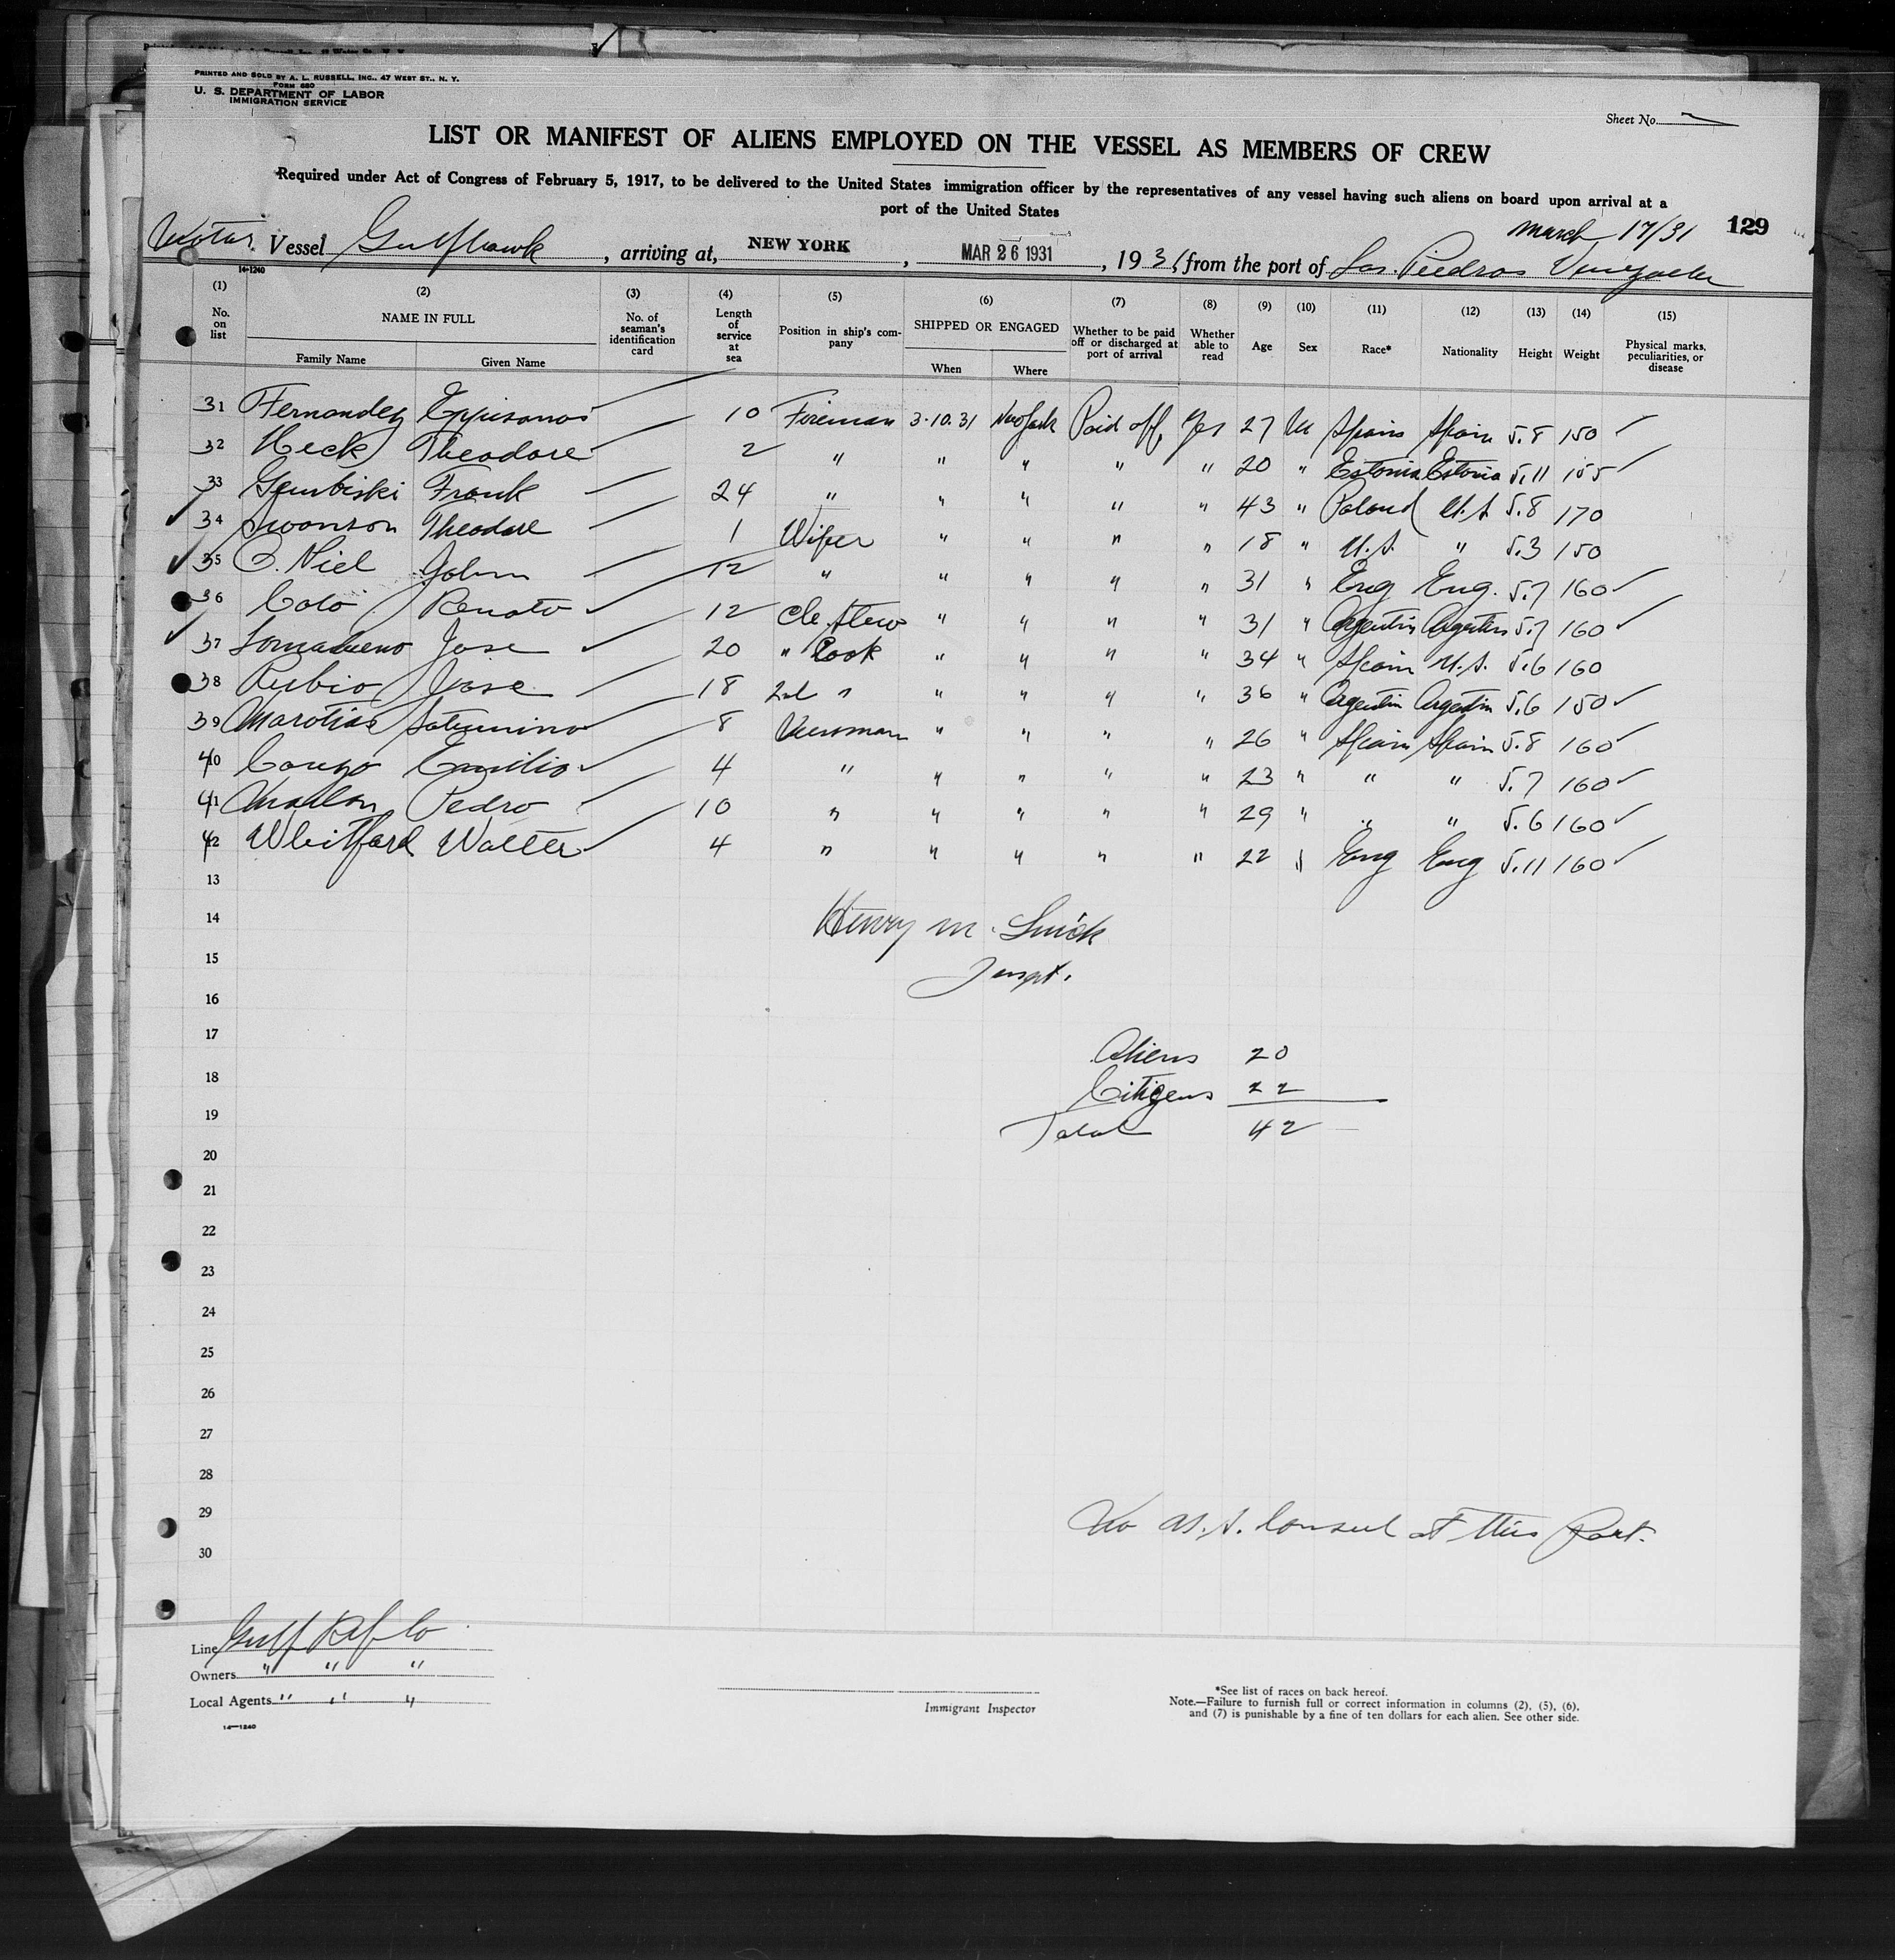 PRINTED AND SOLD BY A. L. RUSSELL, INC., 47 WEST ST., N. Y.
FORM 680
U. S. DEPARTMENT OF LABOR
IMMIGRATION SERVICE
Sheet No.
LIST OR MANIFEST OF ALIENS EMPLOYED ON THE VESSEL AS MEMBERS OF CREW
Required under Act of Congress of February 5, 1917, to be delivered to the United States immigration officer by the representatives of any vessel having such aliens on board upon arrival at a
port of the United States
March 17/31 129
Vessel Gulfhawk, arriving at, NEW YORK, MAR 26 1931, 1931 from the port of Las Piedras Venezuela
14-1240
(1) (2) (3) (4) (5) (6) (7) (8) (9) (10) (11) (12) (13) (14) (15)
No. on list NAME IN FULL Family Name Given Name No. of seaman's identification card Length of service at sea Position in ship's company SHIPPED OR ENGAGED When Where Whether to be paid off or discharged at port of arrival Whether able to read Age Sex Race* Nationality Height Weight Physical marks, peculiarities, or disease
31 Fernandez 10 Fireman 3.10.31 New York Paid off, Yes 27 M Spain Spain 5.8 150 ✓
32 Heck Theodore 2 " " " " " 20 " Estonia Estonia 5.11 155 ✓
33 Frank 24 " " " " " 43 " Poland U.S. 5.8 170
34 Swanson Theodore 1 Wiper " " " " 18 " U.S. " 5.3 150
35 O. Niel John 12 " " " " " 31 " Eng Eng. 5.7 160 ✓
36 Renato 12 " " " " 31 " Argentin Argentin 5.7 160 ✓
37 Jose 20 " Cook " " " " 34 " Spain U.S. 5.6 160
38 Rubio Jose 18 2nd " " " " " 36 " Argentin Argentin 5.6 150 ✓
39 Saturnino 8 " " " " 26 " Spain Spain 5.8 160 ✓
40 Emilio 4 " " " " " 23 " " " 5.7 160 ✓
41 Pedro 10 " " " " " 29 " " " 5.6 160 ✓
42 Whitford Walter 4 " " " " " 22 " Eng Eng 5.11 160 ✓
13
14 Henry M.
15
16
17 Aliens 20
18 Citizens 22
19 Total 42
20
21
22
23
24
25
26
27
28
29 No U.S. Consul at this Port.
30
Line Gulf Ref Co
Owners " " "
Local Agents " " "
14—1240
Immigrant Inspector
*See list of races on back hereof.
Note.—Failure to furnish full or correct information in columns (2), (5), (6),
and (7) is punishable by a fine of ten dollars for each alien. See other side.